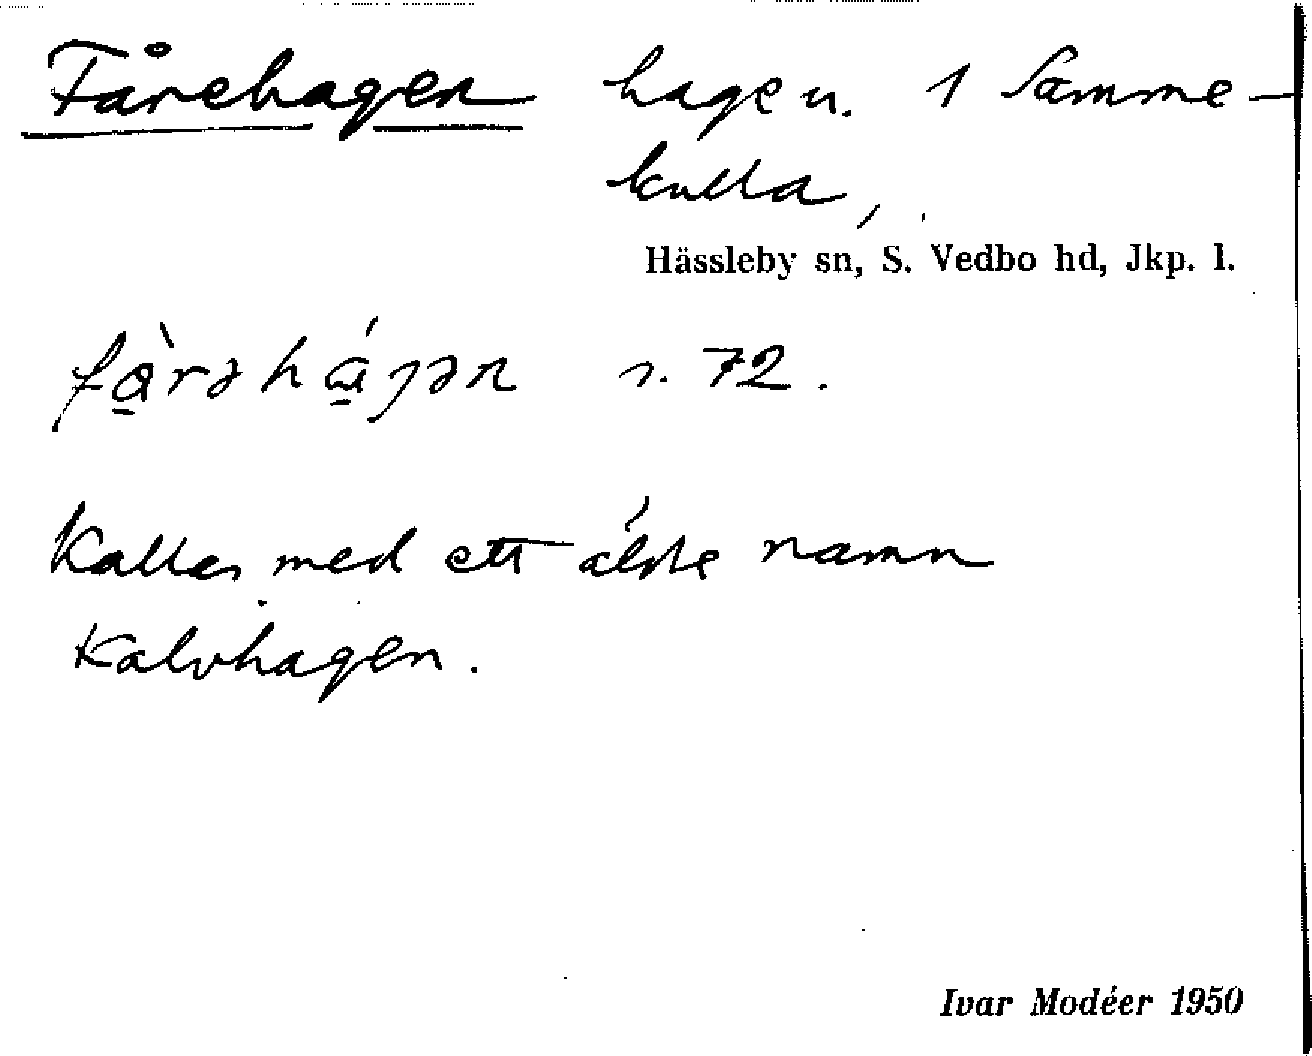 Fårehagen hage u. 1 Samme-
kulla,
Hässleby sn, S. Vedbo hd, Jkp. l.
fà̱rəhá̱gən s. 72.
Kallas med ett äldre namn
Kalvhagen.
Ivar Modéer 1950